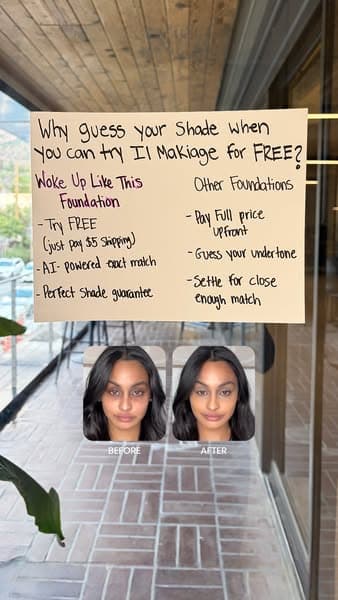 Why guess your Shade when
you can try Il Makiage for FREE?
Woke Up Like This
Foundation
- Try FREE
(just pay $5 shipping)
- AI-powered exact match
- Perfect Shade guarantee
Other Foundations
- Pay Full price
upfront
- Guess your undertone
- Settle for close
enough match
BEFORE
AFTER